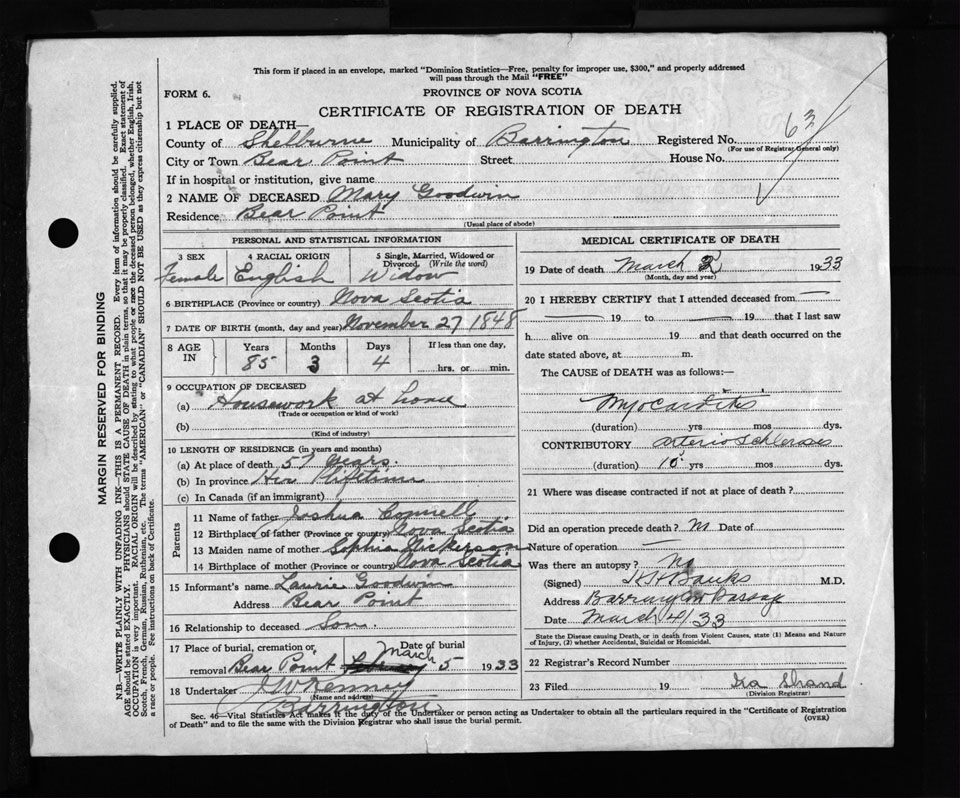 This form if placed in an envelope, marked "Dominion Statistics—Free, penalty for improper use, $300," and properly addressed
will pass through the Mail "FREE"
FORM 6.
PROVINCE OF NOVA SCOTIA
CERTIFICATE OF REGISTRATION OF DEATH
63
1 PLACE OF DEATH—
County of Shelburne Municipality of Barrington Registered No.
(For use of Registrar General only)
City or Town Bear Point Street House No.
If in hospital or institution, give name
2 NAME OF DECEASED Mary Goodwin
Residence Bear Point
(Usual place of abode)
PERSONAL AND STATISTICAL INFORMATION
3 SEX 4 RACIAL ORIGIN 5 Single, Married, Widowed or
Divorced. (Write the word)
Female English Widow
6 BIRTHPLACE (Province or country) Nova Scotia
7 DATE OF BIRTH (month, day and year) November 27 1848
8 AGE IN Years Months Days If less than one day,
85 3 4 hrs. or min.
9 OCCUPATION OF DECEASED
(a) Housework at home
(Trade or occupation or kind of work)
(b)
(Kind of industry)
10 LENGTH OF RESIDENCE (in years and months)
(a) At place of death 57 years.
(b) In province Her lifetime
(c) In Canada (if an immigrant)
Parents
11 Name of father Joshua
12 Birthplace of father (Province or country) Nova Scotia
13 Maiden name of mother Sophia Nickerson
14 Birthplace of mother (Province or country) Nova Scotia
15 Informant's name Laurie Goodwin
Address Bear Point
16 Relationship to deceased Son.
17 Place of burial, cremation or Date of burial
removal Bear Point March 5 1933
18 Undertaker Kenney
(Name and address)
Barrington
MEDICAL CERTIFICATE OF DEATH
19 Date of death March 2 1933
(Month, day and year)
20 I HEREBY CERTIFY that I attended deceased from —
— 19 to — 19 that I last saw
h alive on 19 and that death occurred on the
date stated above, at m.
The CAUSE of DEATH was as follows:—
Myocarditis
(duration) yrs mos dys.
CONTRIBUTORY arterio schlerosis
(duration) 10 yrs mos dys.
21 Where was disease contracted if not at place of death?
Did an operation precede death? No Date of
Nature of operation —
Was there an autopsy? No
(Signed) Banks M.D.
Address Barrington Passage
Date March 4/33
State the Disease causing Death, or in death from Violent Causes, state (1) Means and Nature
of Injury, (2) whether Accidental, Suicidal or Homicidal.
22 Registrar's Record Number
23 Filed 19 Ira Shand
(Division Registrar)
Sec. 46—Vital Statistics Act makes it the duty of the Undertaker or person acting as Undertaker to obtain all the particulars required in the "Certificate of Registration
of Death" and to file the same with the Division Registrar who shall issue the burial permit. (OVER)
MARGIN RESERVED FOR BINDING
N.B.—WRITE PLAINLY WITH UNFADING INK—THIS IS A PERMANENT RECORD. Every item of information should be carefully supplied.
AGE should be stated EXACTLY. PHYSICIANS should STATE CAUSE OF DEATH in plain terms, so that it may be properly classified. Exact statement of
OCCUPATION is very important. RACIAL ORIGIN will be described by stating to what people or race the deceased person belonged, whether English, Irish,
Scotch, French, German, Russian, Ruthenian, etc. The terms "AMERICAN" or "CANADIAN" SHOULD NOT BE USED as they express citizenship but not
a race or people. See instructions on back of Certificate.